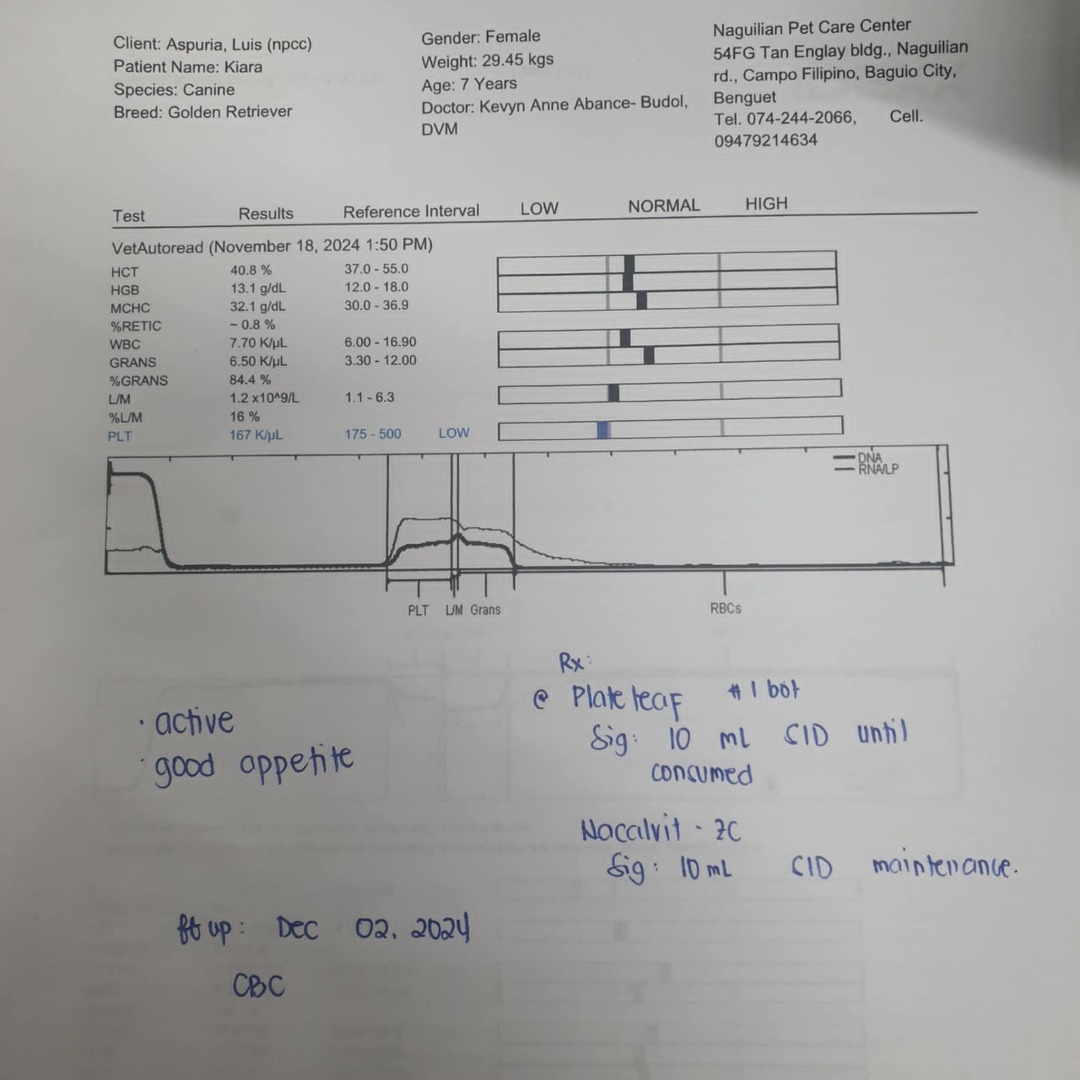 Client: Aspuria, Luis (npcc)
Patient Name: Kiara
Species: Canine
Breed: Golden Retriever
Gender: Female
Weight: 29.45 kgs
Age: 7 Years
Doctor: Kevyn Anne Abance- Budol,
DVM
Naguilian Pet Care Center
54FG Tan Englay bldg., Naguilian
rd., Campo Filipino, Baguio City,
Benguet
Tel. 074-244-2066, Cell.
09479214634
Test Results Reference Interval LOW NORMAL HIGH
VetAutoread (November 18, 2024 1:50 PM)
HCT 40.8 % 37.0 - 55.0
HGB 13.1 g/dL 12.0 - 18.0
MCHC 32.1 g/dL 30.0 - 36.9
%RETIC ~ 0.8 %
WBC 7.70 K/µL 6.00 - 16.90
GRANS 6.50 K/µL 3.30 - 12.00
%GRANS 84.4 %
L/M 1.2 x10^9/L 1.1 - 6.3
%L/M 16 %
PLT 167 K/µL 175 - 500 LOW
DNA
RNA/LP
PLT L/M Grans RBCs
· active
· good appetite
Rx:
@ Plateleaf # 1 bot
Sig: 10 mL SID until
consumed
Nacalvit - ZC
Sig: 10 mL SID maintenance.
ff up: Dec 02, 2024
CBC